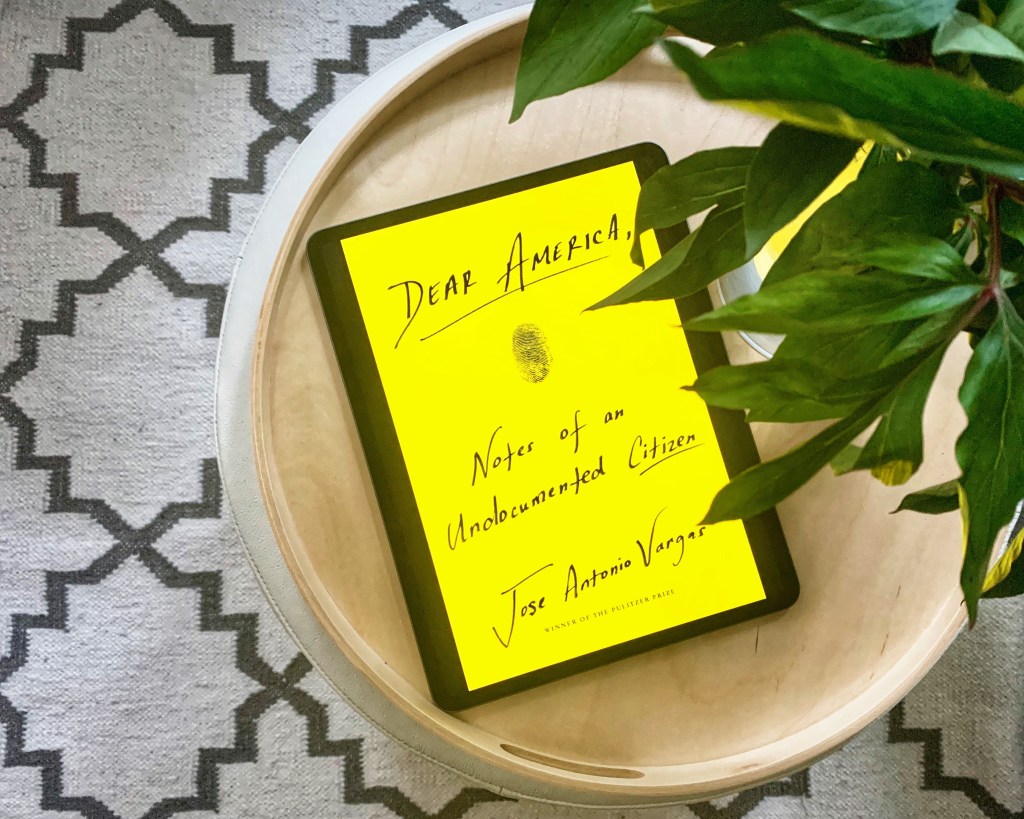 DEAR AMERICA,
Notes of an
Undocumented Citizen
Jose Antonio Vargas
WINNER OF THE PULITZER PRIZE